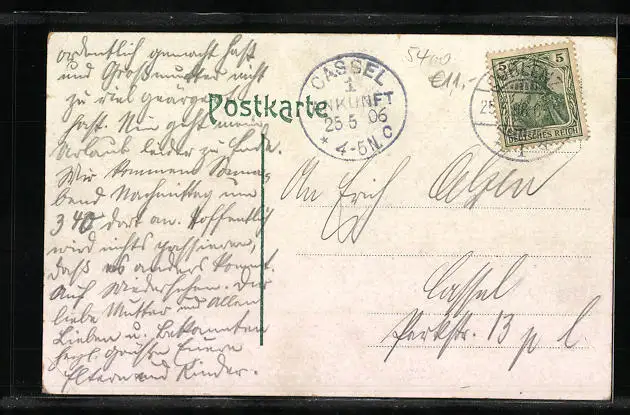 ordentlich gemacht hast
und Großmutter nicht
zu viel geärgert
hast. Nun geht mein
Urlaub leider zu Ende.
Wir kommen Sonna-
bend Nachmittag um
3 40 dort an. Hoffentlich
wird nichts passieren,
daß es anders kommt.
Auf Wiedersehen. Die
liebe Mutter und allen
Lieben u. Bekannten
herzl. Grüße Euern
Eltern und Kinder.
Postkarte
CASSEL
1
ANKUNFT
25.5 06
* 4-5 N. C
5400
€11,-
5 5
DEUTSCHES REICH
25
An Erich
Cassel
Parkstr. 13 p l.